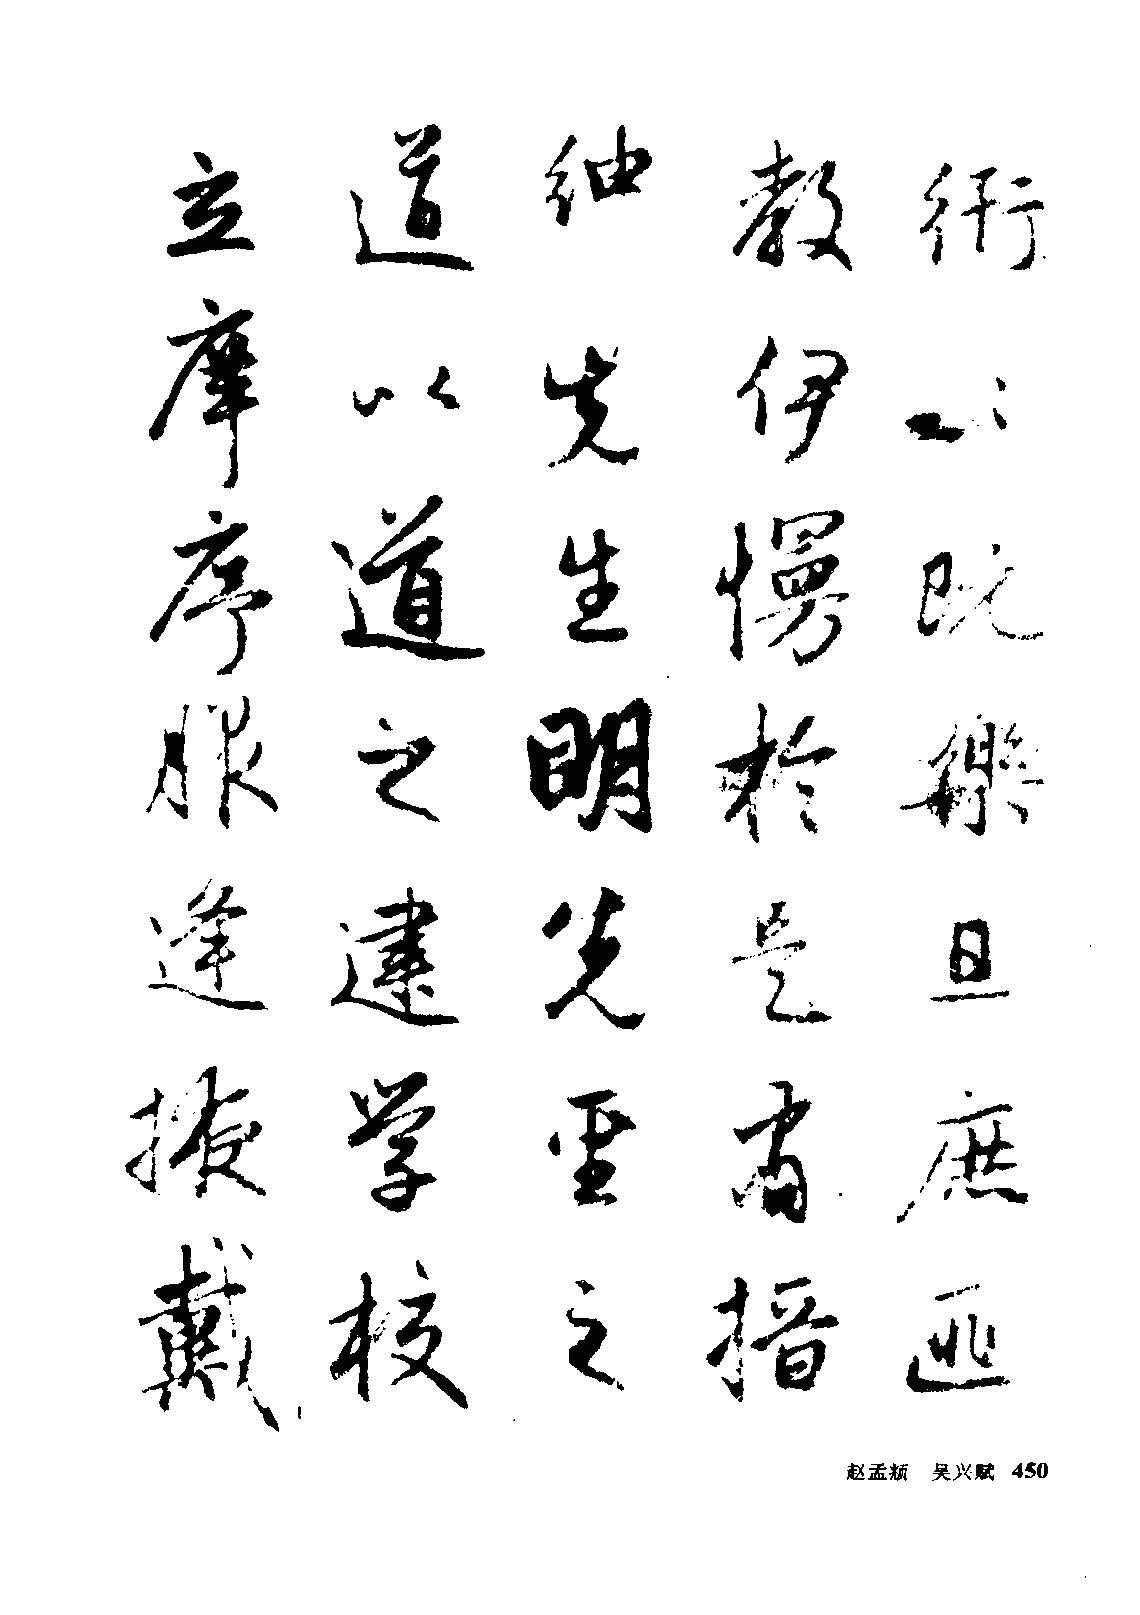 衎以既樂且庶匪
教伊慢於是有搢
紳先生明先聖之
道以道之建学校
立庠序服逢掖戴
赵孟頫 吴兴赋 450